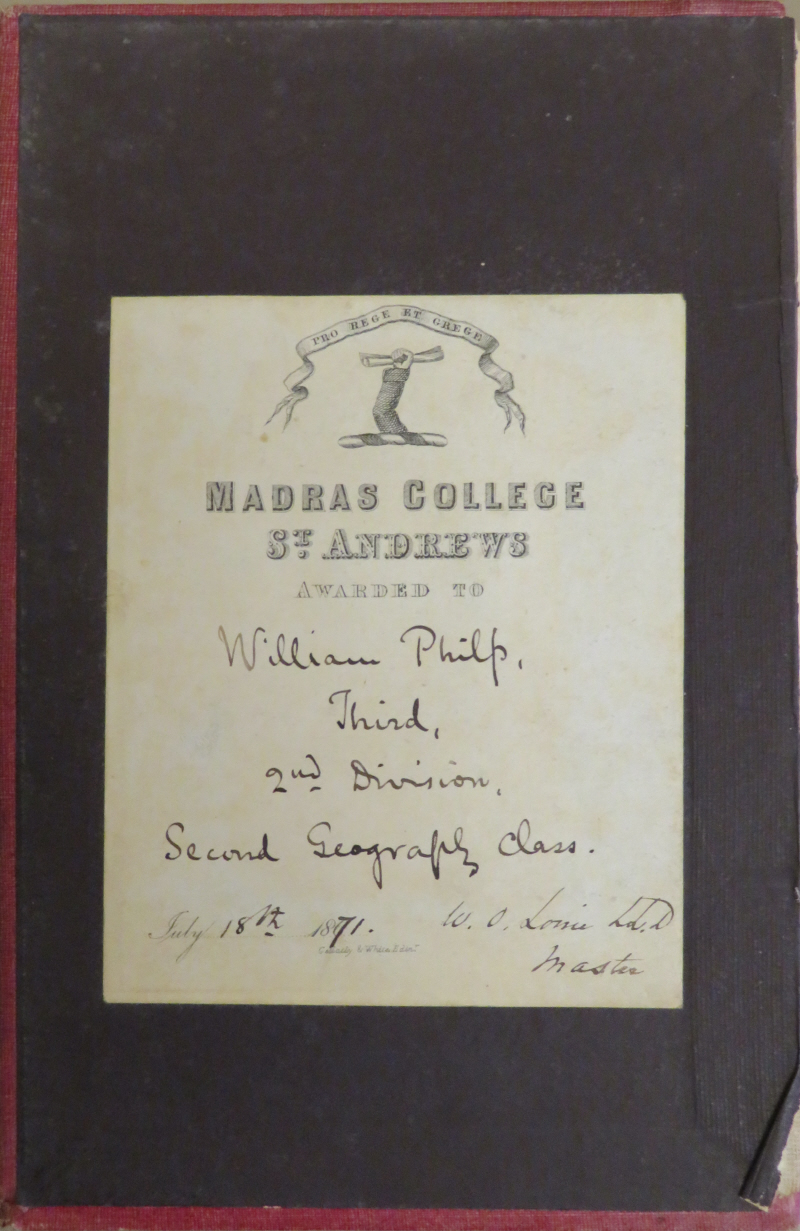 PRO REGE ET GREGE
MADRAS COLLEGE
ST ANDREWS
AWARDED TO
William Philp,
Third,
2nd Division,
Second Geography Class.
July 18th 1871. W. O. Lonie
Master